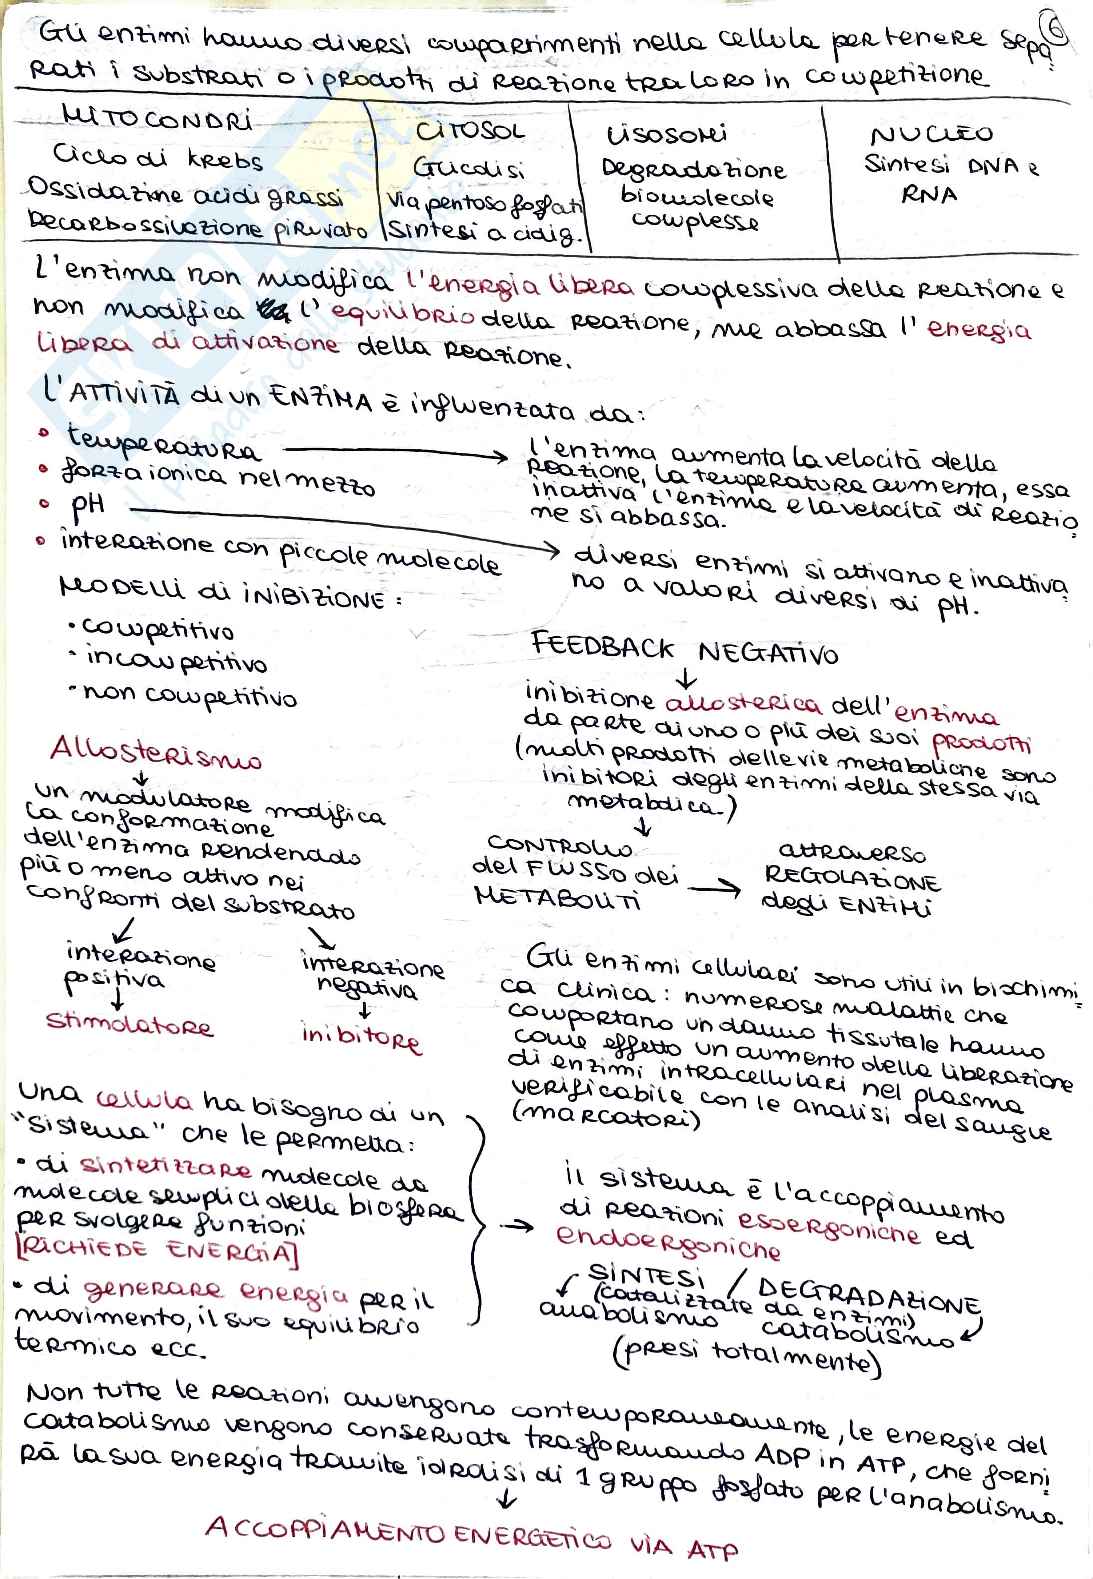 6
Gli enzimi hanno diversi compartimenti nella cellula per tenere sepa
rati i substrati o i prodotti di reazione tra loro in competizione
MITOCONDRI
Ciclo di Krebs
Ossidazione acidi grassi
Decarbossilazione piruvato
CITOSOL
Glicolisi
via pentoso fosfati
Sintesi acidi g.
LISOSOMI
Degradazione
biomolecole
complesse
NUCLEO
Sintesi DNA e
RNA
L'enzima non modifica l'energia libera complessiva della reazione e
non modifica l'equilibrio della reazione, me abbassa l'energia
libera di attivazione della reazione.
L'ATTIVITÀ di un ENZIMA è influenzata da:
• temperatura
• forza ionica nel mezzo
• pH
• interazione con piccole molecole
l'enzima aumenta la velocità della
reazione, la temperatura aumenta, essa
inattiva l'enzima e la velocità di reazio
ne si abbassa.
diversi enzimi si attivano e inattiva
no a valori diversi di pH.
MODELLI di INIBIZIONE:
• competitivo
• incompetitivo
• non competitivo
FEEDBACK NEGATIVO
inibizione allosterica dell'enzima
da parte di uno o più dei suoi prodotti
(molti prodotti delle vie metaboliche sono
inibitori degli enzimi della stessa via
metabolica.)
CONTROLLO
del FLUSSO dei
METABOLITI
attraverso
REGOLAZIONE
degli ENZIMI
Allosterismo
un modulatore modifica
la conformazione
dell'enzima rendenado
più o meno attivo nei
confronti del substrato
interazione
positiva
stimolatore
interazione
negativa
inibitore
Gli enzimi cellulari sono utili in biochimi
ca clinica: numerose malattie che
comportano un danno tissutale hanno
come effetto un aumento della liberazione
di enzimi intracellulari nel plasma
verificabile con le analisi del sangue
(marcatori)
Una cellula ha bisogno di un
"sistema" che le permetta:
• di sintetizzare molecole da
molecole semplici della biosfera
per svolgere funzioni
[RICHIEDE ENERGIA]
• di generare energia per il
movimento, il suo equilibrio
termico ecc.
il sistema è l'accoppiamento
di reazioni esoergoniche ed
endoergoniche
SINTESI / DEGRADAZIONE
(catalizzate da enzimi)
anabolismo catabolismo
(presi totalmente)
Non tutte le reazioni avvengono contemporaneamente, le energie del
catabolismo vengono conservate trasformando ADP in ATP, che forni
rà la sua energia tramite idrolisi di 1 gruppo fosfato per l'anabolismo.
ACCOPPIAMENTO ENERGETICO VIA ATP